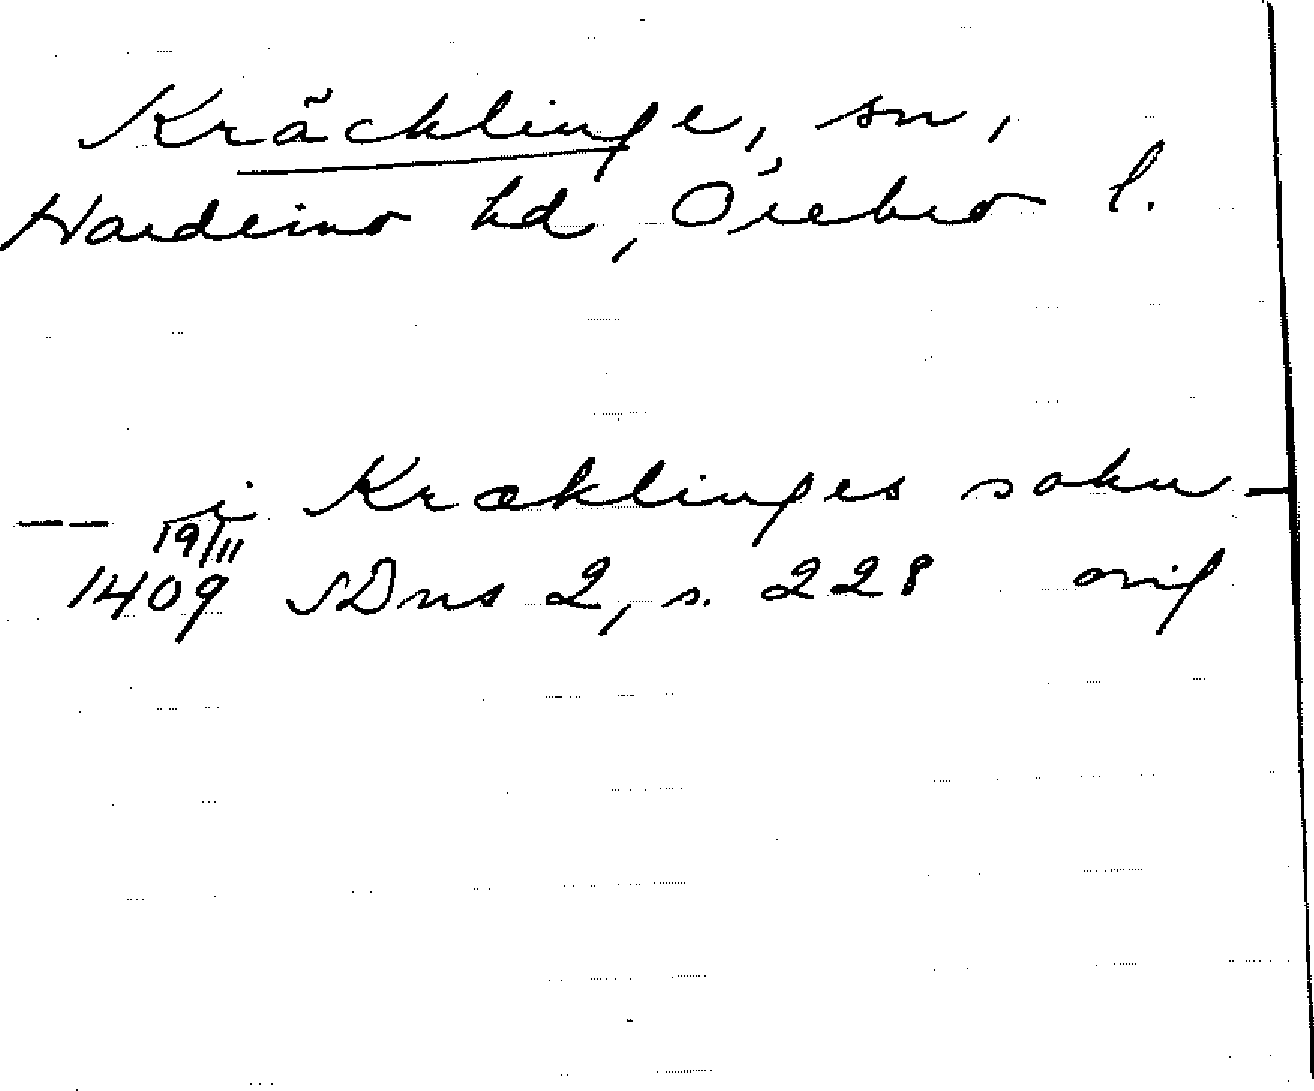 Kräcklinge, sn,
Hardemo hd, Örebro l.
-- i Kræklinges sokn -
19/11
1409 SDns 2, s. 228 orig